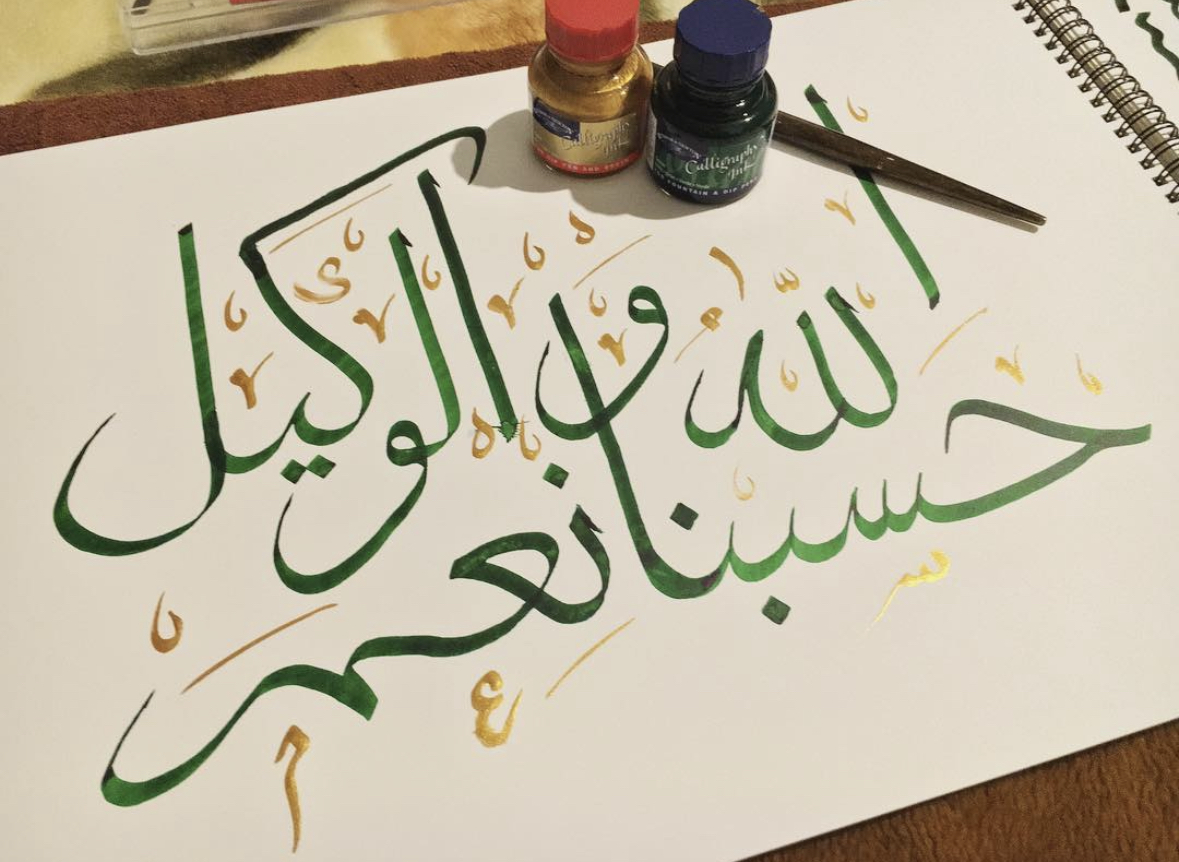 حسبنا الله و
نعم الوكيل
Calligraphy Ink
Calligraphy Ink
FOUNTAIN & DIP PEN